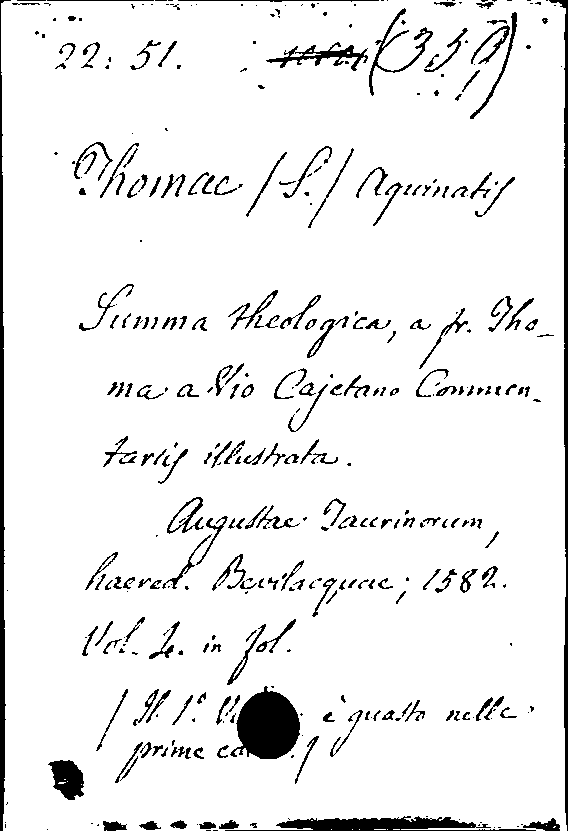 22: 51. (359)
Thomae (S.) Aquinatis
Summa theologica, a fr. Tho-
ma a Vio Cajetano Commen-
tariis illustrata.
Augustae Taurinorum,
haered. Bevilacquae; 1582.
Vol. 4. in fol.
(Il 1º è guasto nelle
prime